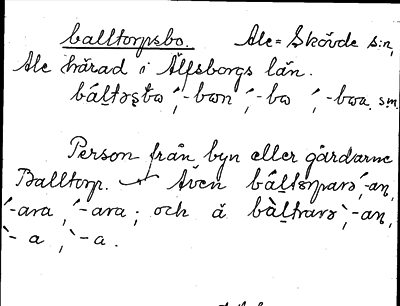 balltorpsbo. Ale = Skövde s:n,
Ale härad i Älfsborgs län.
bált̠ɔs̠tɯ ´, -bɯn ´, -bɯ ´, -bɯa. sm.
Person från byn eller gårdarne
Balltorp. — Även bál̠tɔrparɔ ´, -an,
´-ara, ´-ara; och å bàl̠trarɔ `, -an,
`- a, `-a.